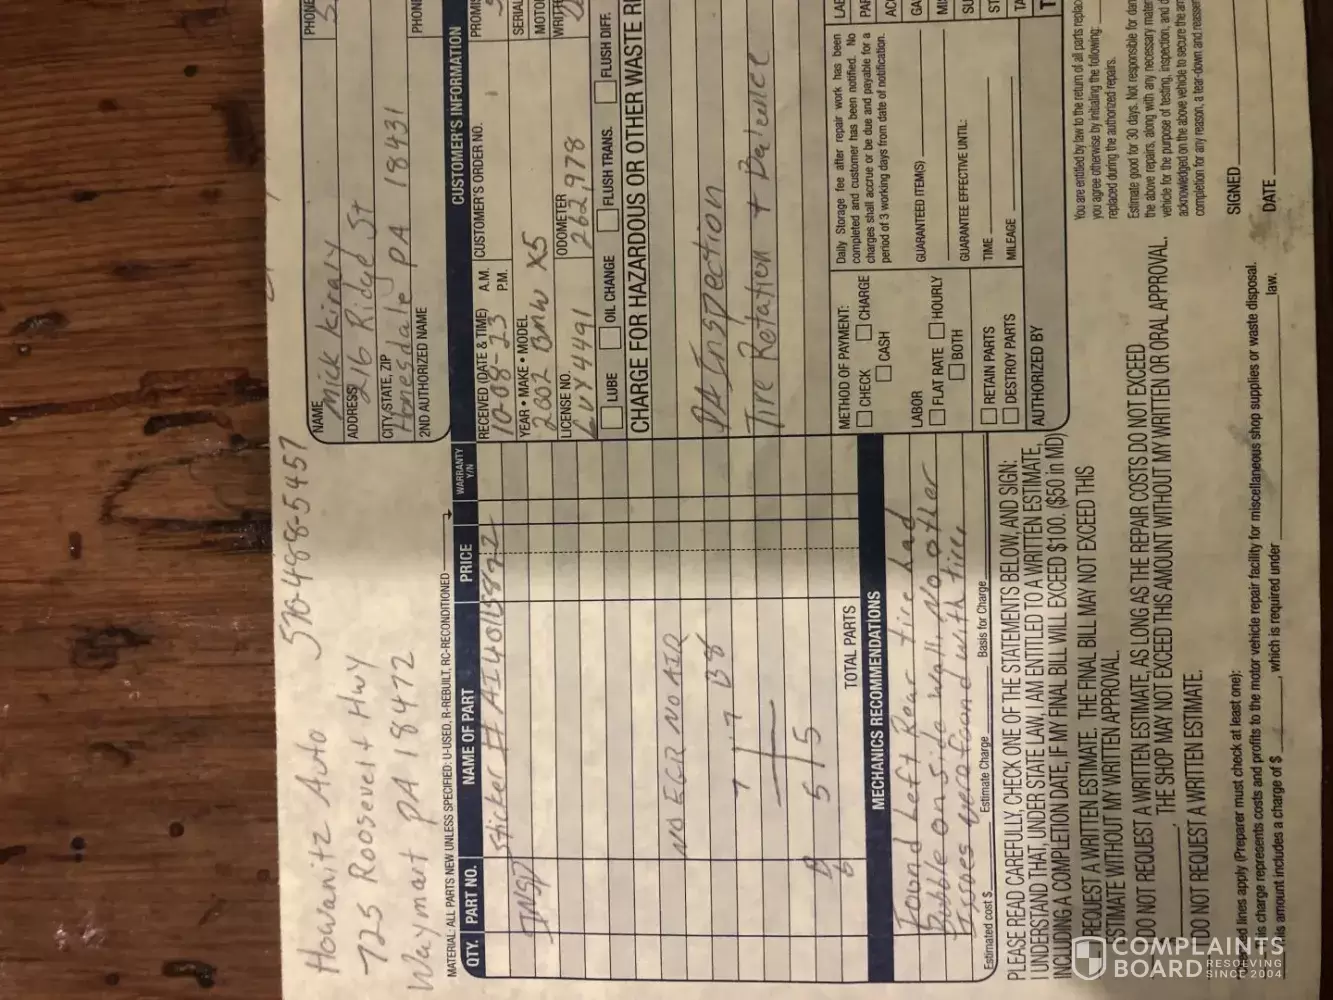 Howanitz Auto 570-488-5457
725 Roosevelt Hwy
Waymart PA 18472
MATERIAL: ALL PARTS NEW UNLESS SPECIFIED: U-USED, R-REBUILT, RC-RECONDITIONED
QTY. PART NO. NAME OF PART PRICE WARRANTY Y/N
INSP Sticker # AI40115872
NO EGR NO AIR
7 7 B8
5 5
TOTAL PARTS
MECHANICS RECOMMENDATIONS
Found Left Rear tire had
Bubble on side wall. No other
Issues were found with tires
Estimated cost $ Estimate Charge Basis for Charge
PLEASE READ CAREFULLY, CHECK ONE OF THE STATEMENTS BELOW, AND SIGN:
I UNDERSTAND THAT, UNDER STATE LAW, I AM ENTITLED TO A WRITTEN ESTIMATE,
INCLUDING A COMPLETION DATE, IF MY FINAL BILL WILL EXCEED $100. ($50 in MD)
REQUEST A WRITTEN ESTIMATE. THE FINAL BILL MAY NOT EXCEED THIS
ESTIMATE WITHOUT MY WRITTEN APPROVAL.
DO NOT REQUEST A WRITTEN ESTIMATE, AS LONG AS THE REPAIR COSTS DO NOT EXCEED
THE SHOP MAY NOT EXCEED THIS AMOUNT WITHOUT MY WRITTEN OR ORAL APPROVAL.
DO NOT REQUEST A WRITTEN ESTIMATE.
lines apply (Preparer must check at least one):
charge represents costs and profits to the motor vehicle repair facility for miscellaneous shop supplies or waste disposal.
amount includes a charge of $ , which is required under law.
NAME Mick Kiraly PHONE
ADDRESS 216 Ridge St
CITY, STATE, ZIP Honesdale PA 18431
2ND AUTHORIZED NAME PHONE
CUSTOMER'S INFORMATION
RECEIVED (DATE & TIME) A.M. P.M. CUSTOMER'S ORDER NO.
10-08-23
YEAR • MAKE • MODEL
2002 BMW X5
LICENSE NO. ODOMETER
LVY4491 262,978
LUBE OIL CHANGE FLUSH TRANS. FLUSH DIFF.
CHARGE FOR HAZARDOUS OR OTHER WASTE
PA Inspection
Tire Rotation + Balance
METHOD OF PAYMENT:
CHECK CHARGE
CASH
LABOR
FLAT RATE HOURLY
BOTH
RETAIN PARTS
DESTROY PARTS
AUTHORIZED BY
Daily Storage fee after repair work has been
completed and customer has been notified. No
charges shall accrue or be due and payable for a
period of 3 working days from date of notification.
GUARANTEED ITEM(S)
GUARANTEE EFFECTIVE UNTIL:
TIME
MILEAGE
You are entitled by law to the return of all parts
you agree otherwise by initialing the following:
replaced during the authorized repairs.
Estimate good for 30 days. Not responsible for
the above repairs, along with any necessary
vehicle for the purpose of testing, inspection, and
acknowledged on the above vehicle to secure the
completion for any reason, a tear-down and
SIGNED
DATE
COMPLAINTS
BOARD RESOLVING
SINCE 2004